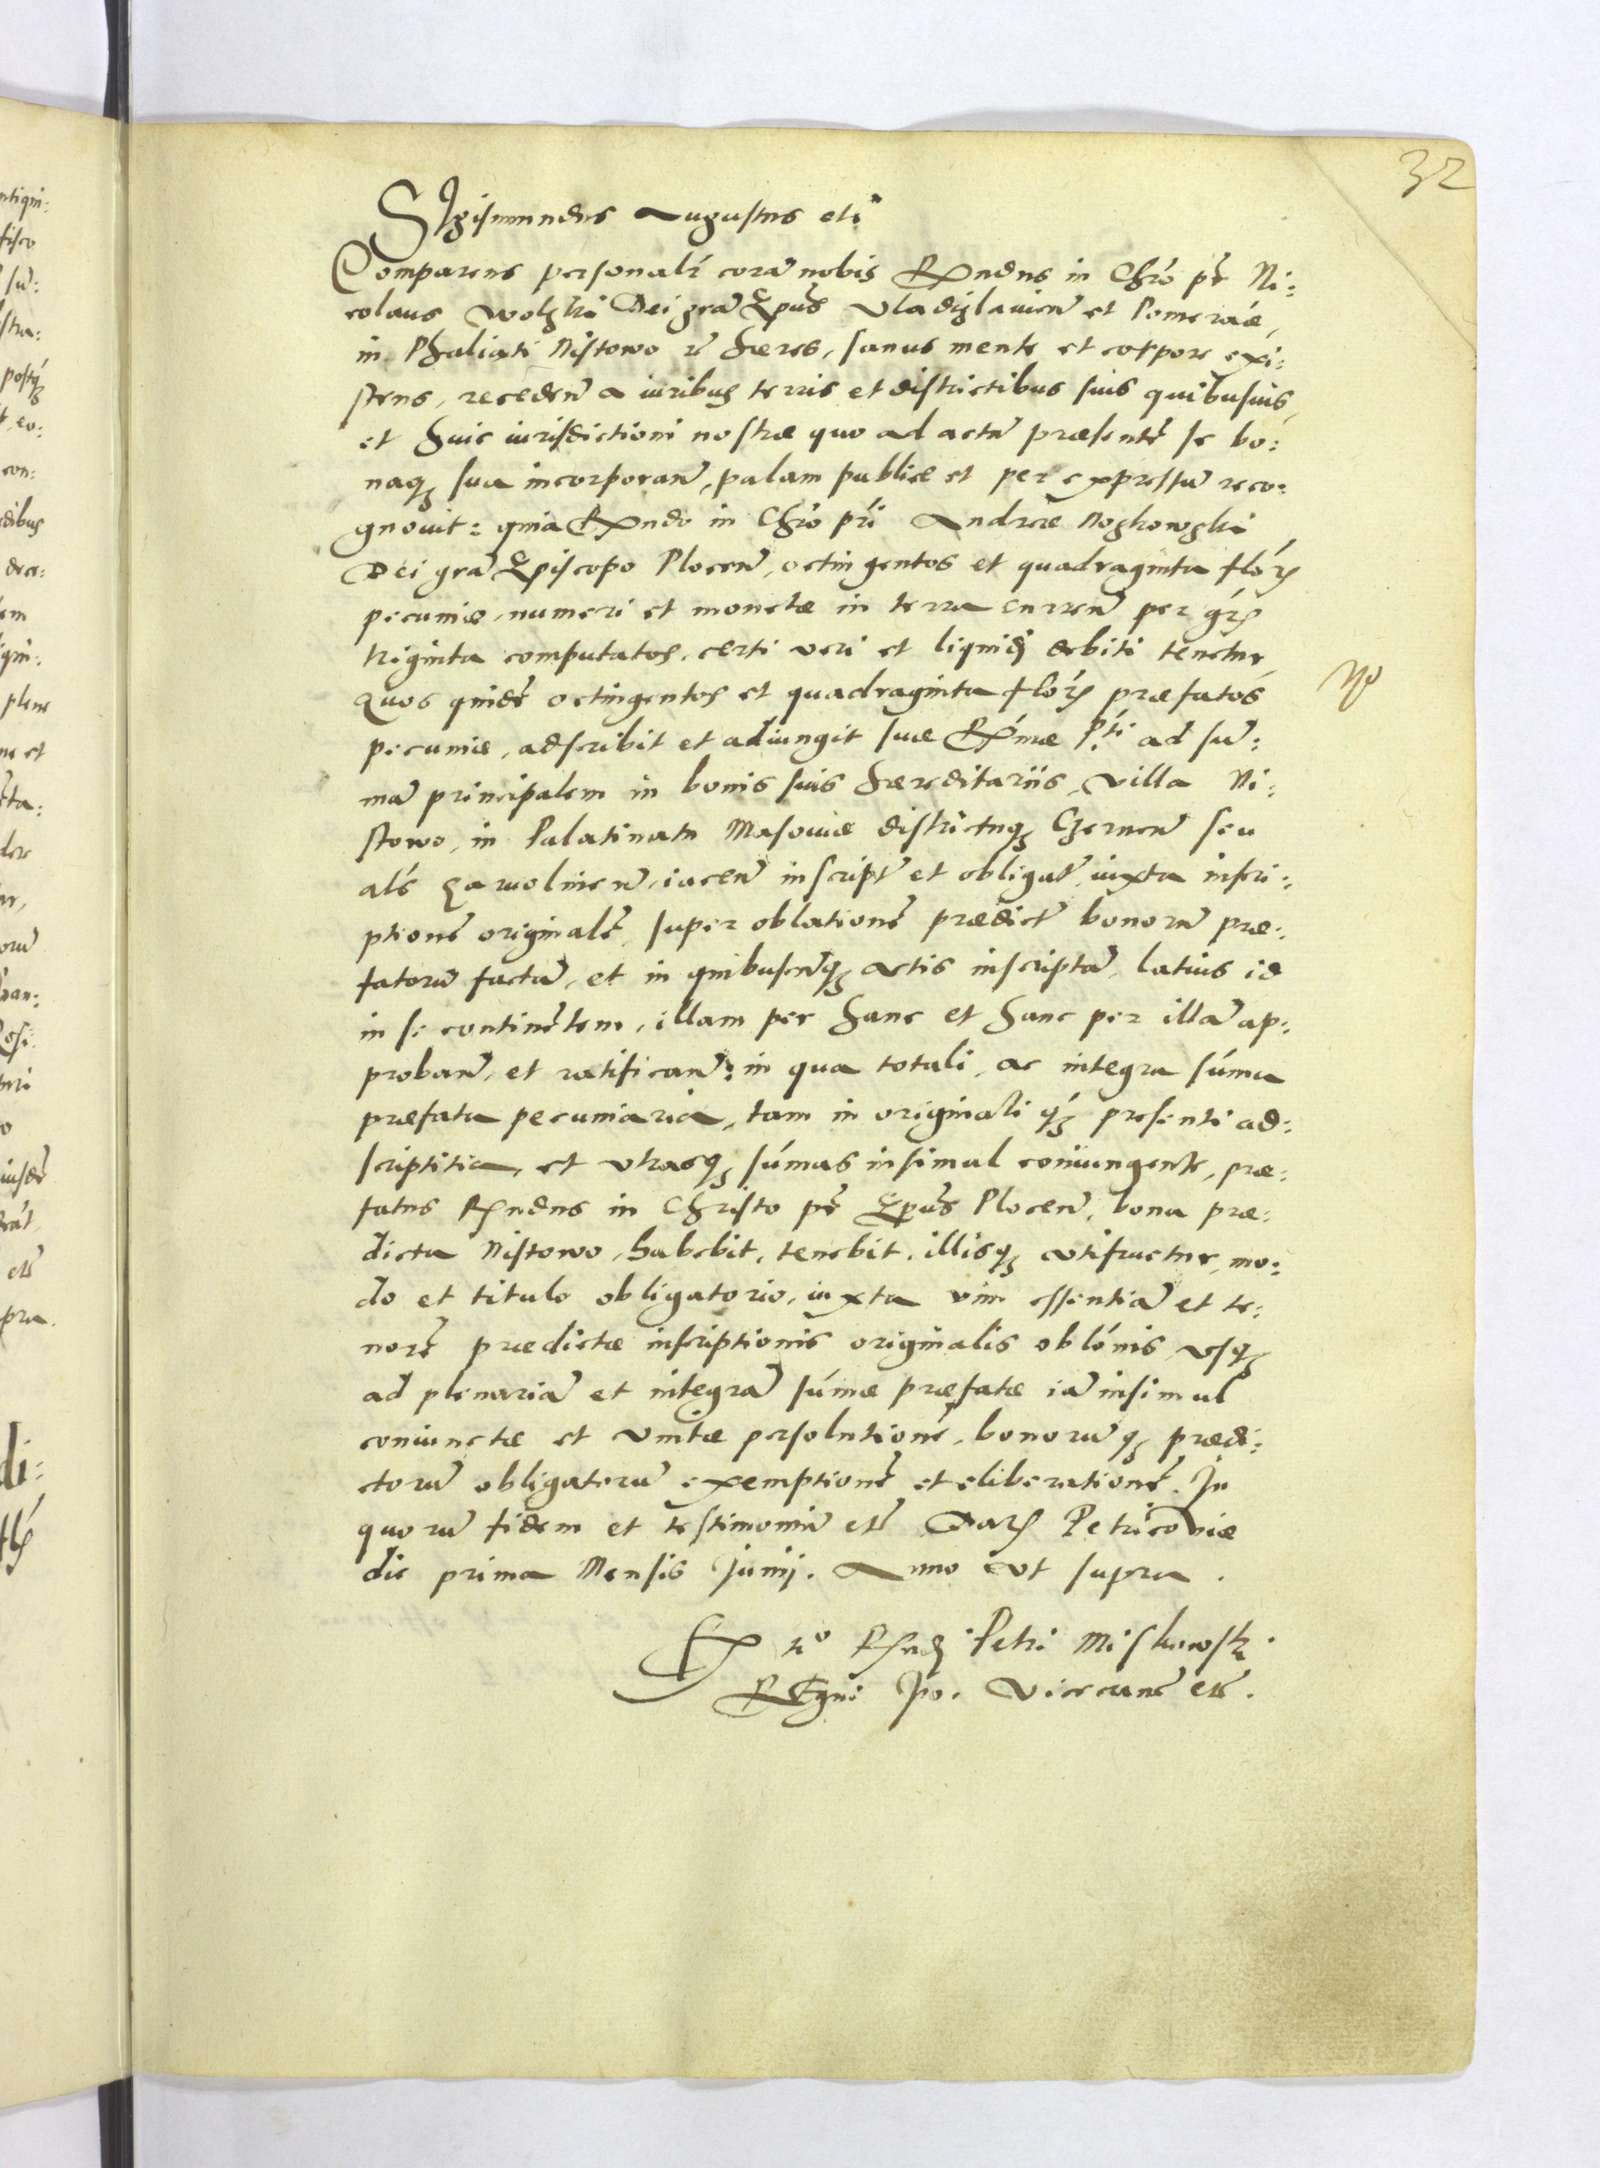 32
Sigismundus Augustus etc̃
Comparens personalr̃ corã nobis Rx̃ndus in Chr̃o pr̃ Ni:
colaus Wolski Dei gr̃a Ep̃us Vladislauieñ et Pomerãe,
in Nistowo hæres, sanus mente et corpore exi:
stens, recedeñ a iuribus terris et districtibus suis quibusuis,
et huic iurisdictioni nostræ quo ad actũ præsentẽ se bo:
naq3 sua incorporañ, palam publice et per expressũ reco:
gnouit: quia Rx̃ndo in Chr̃o pr̃i Andreæ Noskowski
Dei gr̃a Episcopo Ploceñ, octingentos et quadraginta flor̃
pecuniæ, numeri et monetæ in terra curreñ per gr̃
triginta computatos, certi veri et liquidi debiti tenetur
Quos quidẽ octingentos et quadraginta flor̃ præfatos
pecuniæ, adscribit et adiungit suæ Rx̃mæ P.ti ad sũ:
mã principalem in bonis suis hæreditariis, villa Ni:
stowo, in Palatinatu Masouiæ districtuq3 Czerneñ seu
al̃s Zawolineñ, iaceñ inscript̃ et obligat̃, iuxta inscri:
ptionẽ originalẽ, super oblationẽ prædict̃ bonorũ præ:
fatorũ factã, et in quibuscũq3 actis inscriptã, latius id
in se continẽtem, illam per hanc et hanc per illã ap:
probañ, et ratificañ: in qua totali, ac integra sũma
præfata pecuniaria, tam in originali q̃3 presenti ad:
scriptitia, et vtrasq3 sũmas insimul coniungente, præ:
fatus Rñdus in Christo pr̃ Ep̃us Ploceñ, bona præ:
dicta Nistowo, habebit, tenebit, illisq3 vtifruetur, mo:
do et titulo obligatorio, iuxta vim essentiã et te:
norẽ prædictæ inscriptionis originalis obl̃onis, vsq3
ad plenariã et integrã sũmæ præfatæ iã insimul
coniunctæ et vnitæ persolutionẽ, bonorũ q3 prædi:
ctorũ obligatorũ exemptionẽ et eliberationẽ. In
quorũ fidem et testimoniũ etc̃ Dat̃ Petricouiæ
die prima Mensis Junij. Anno vt supra.
Ex Rñdi Petri Miskowski
Regni Po. Vicecanc̃ etc̃.